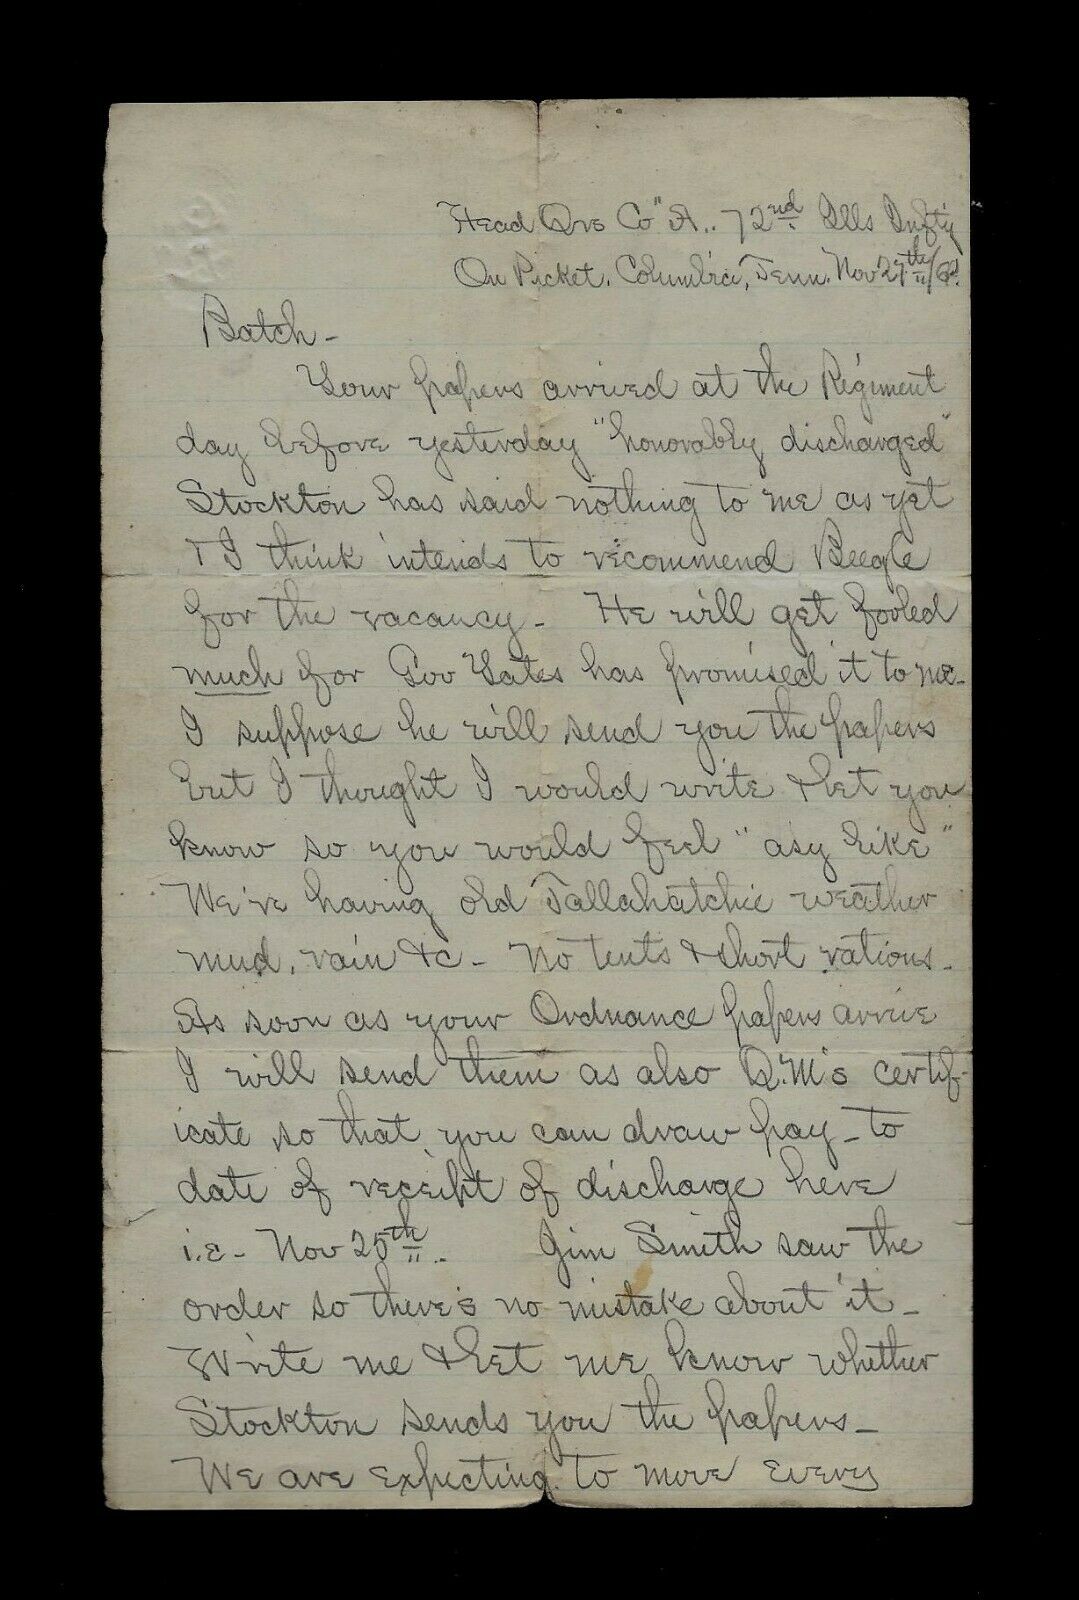 Head Qrs Co "A.. 72nd Ills Infty
On Picket, Columbia, Tenn. Nov 27th
Batch -
Your papers arrived at the Regiment
day before yesterday "honorably discharged"
Stockton has said nothing to me as yet
& I think intends to recommend Beegle
for the vacancy - He will get fooled
much for Gov Yates has promised it to me -
I suppose he will send you the papers
but I thought I would write & let you
know so you would feel "asy like"
We're having old Tallahatchie weather
mud, rain &c - No tents & short rations -
As soon as your Ordnance papers arrive
I will send them as also Q.M's certif-
icate so that you can draw pay - to
date of receipt of discharge here
i.e - Nov 25th - Jim Smith saw the
order so there's no mistake about it -
Write me & let me know whether
Stockton sends you the papers -
We are expecting to move every